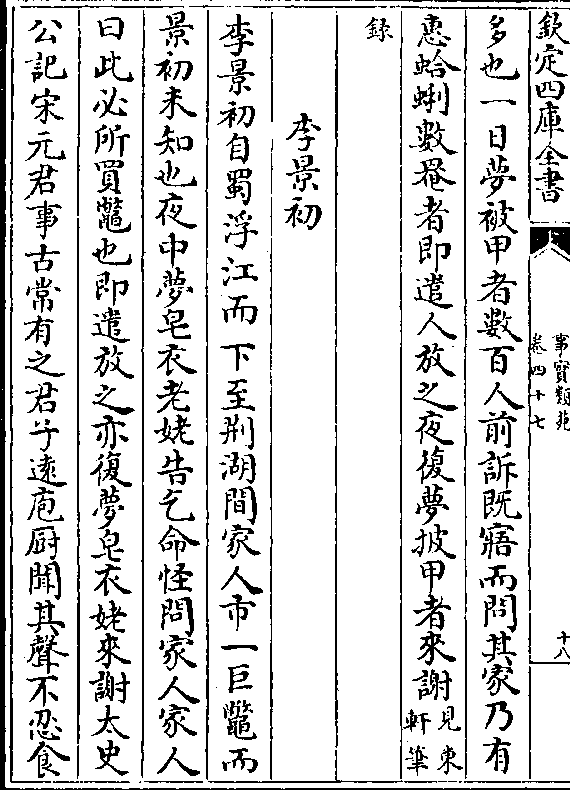 欽定四庫全書
事實類苑
卷四十七
十八
多也一日夢被甲者數百人前訴既寤而問其家乃有
惠蛤蜊數罨者即遣人放之夜復夢披甲者來謝見東軒筆
録
李景初
李景初自蜀浮江而下至荆湖間家人市一巨鼈而
景初未知也夜中夢皂衣老姥告乞命怪問家人家人
曰此必所買鼈也即遣放之亦復夢皂衣姥來謝太史
公記宋元君事古常有之君子遠庖厨聞其聲不忍食